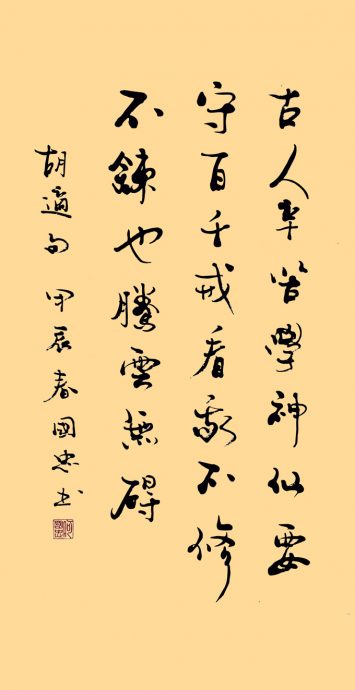 古人辛苦學神仙要
守百千戒看我不修
不鍊也騰雲無碍
胡適句 甲辰春國忠书